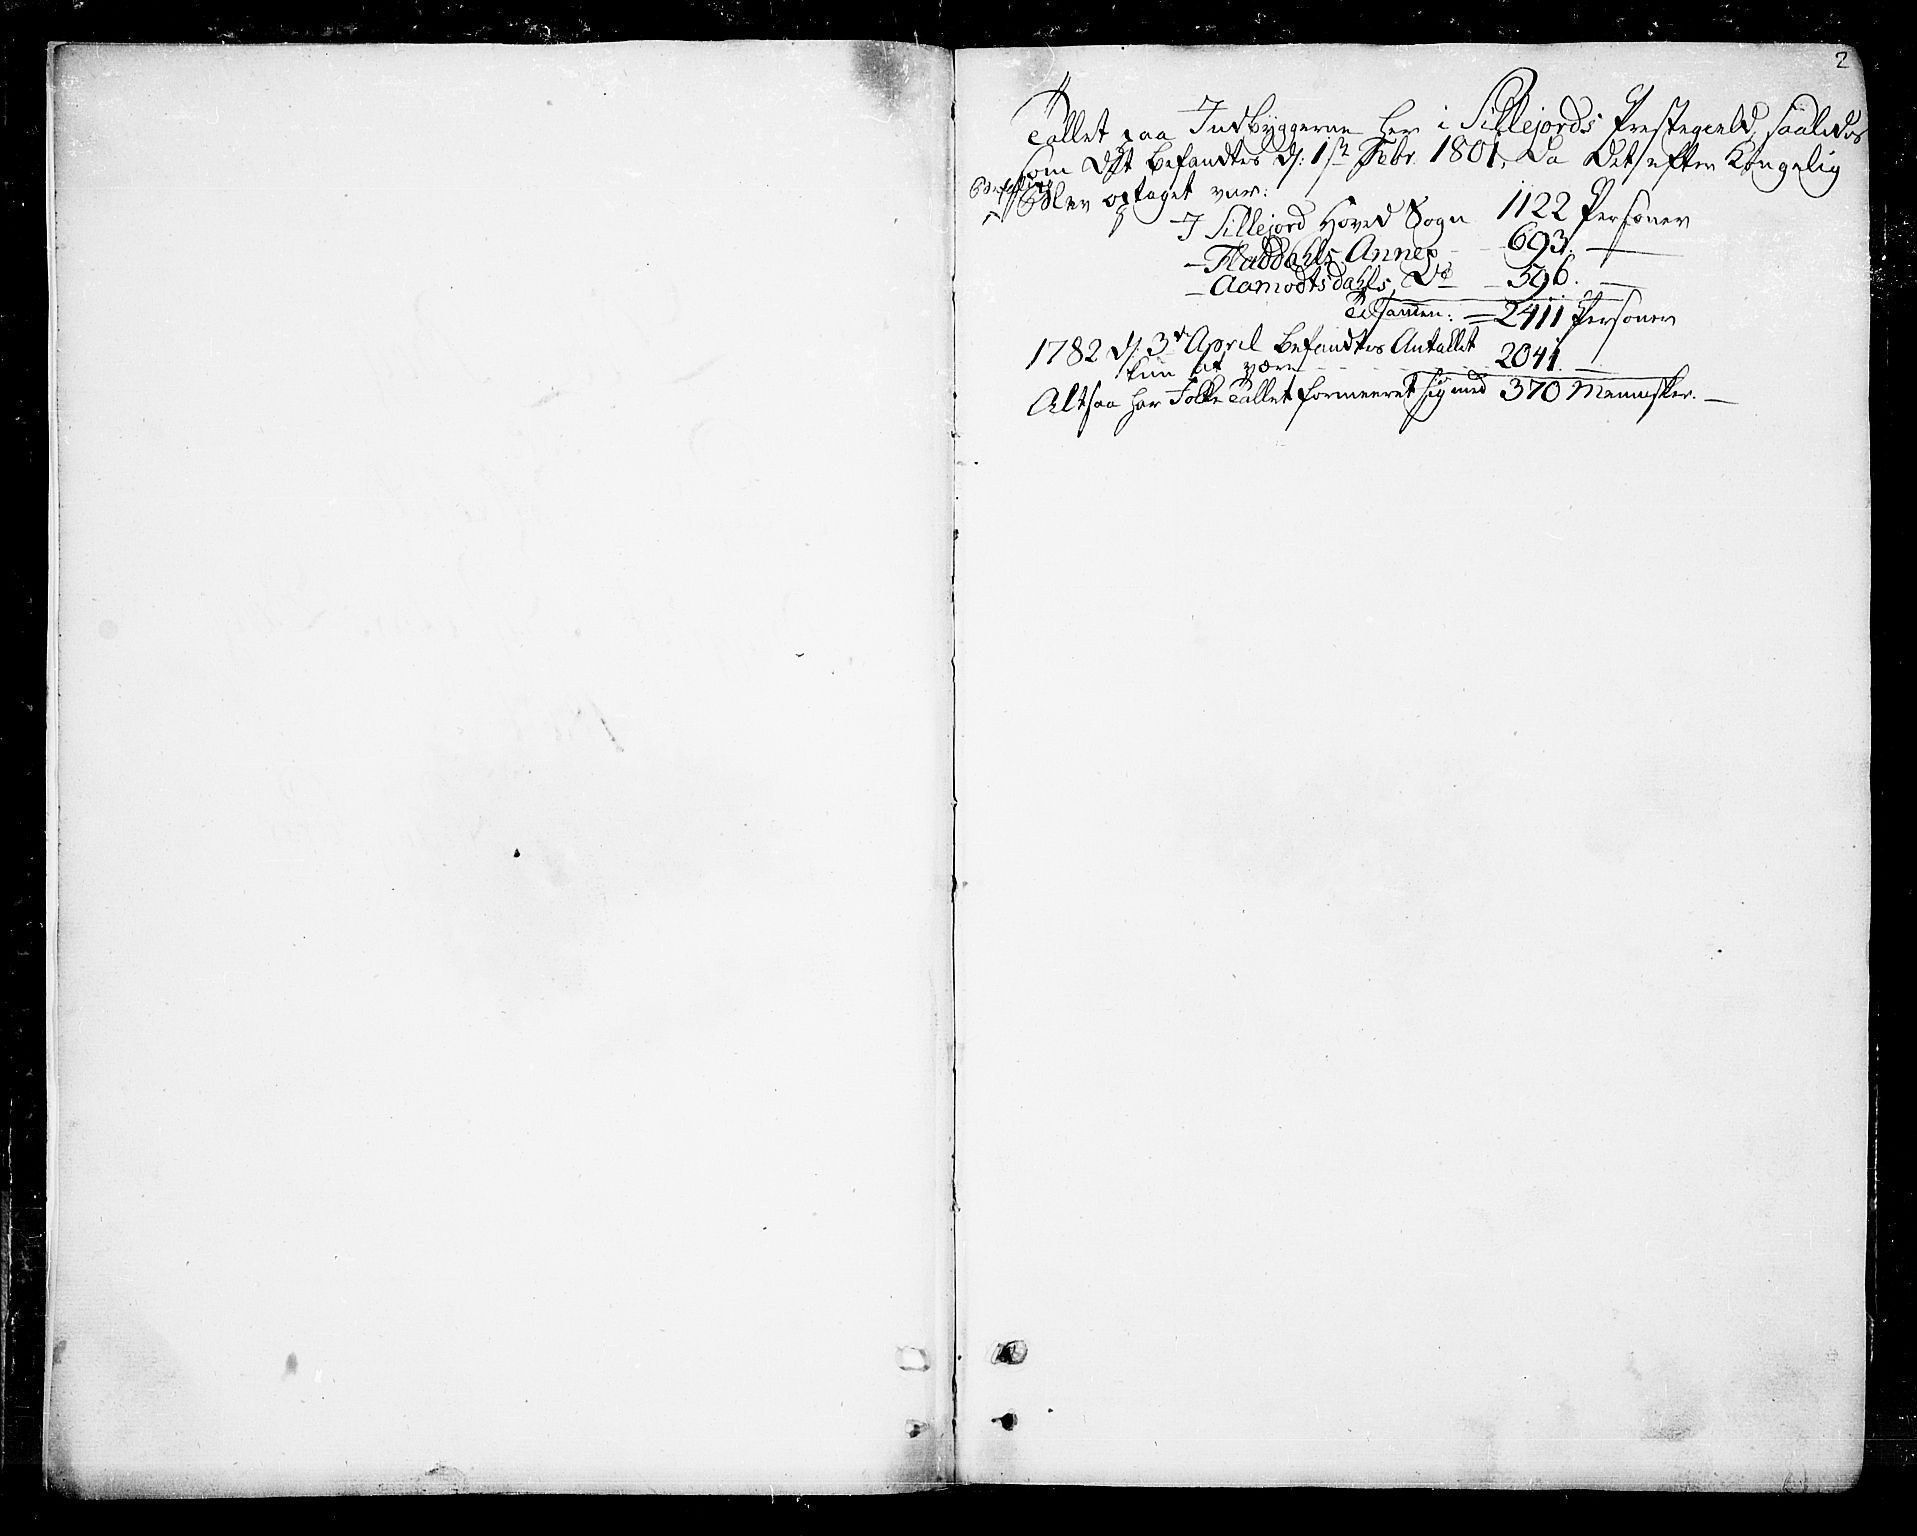 2
Tallet paa Indbyggerne her i Sillejords Prestegield, saaledes
som det befandtes d: 1ste Febr. 1801, da det efter Kongelig
Befaling
blev optaget var:
I Sillejord Hoved Sogn 1122 Personer
- Fladdahls Annex - 693. —
- Aamodtsdahls Do - 596. —
Tilsamen: = 2411 Personer
1782 d: 3de April befandtes Antallet
kun at være - - - 2041. —
Altsaa har Folke Tallet formeeret sig med 370 Mennisker. —